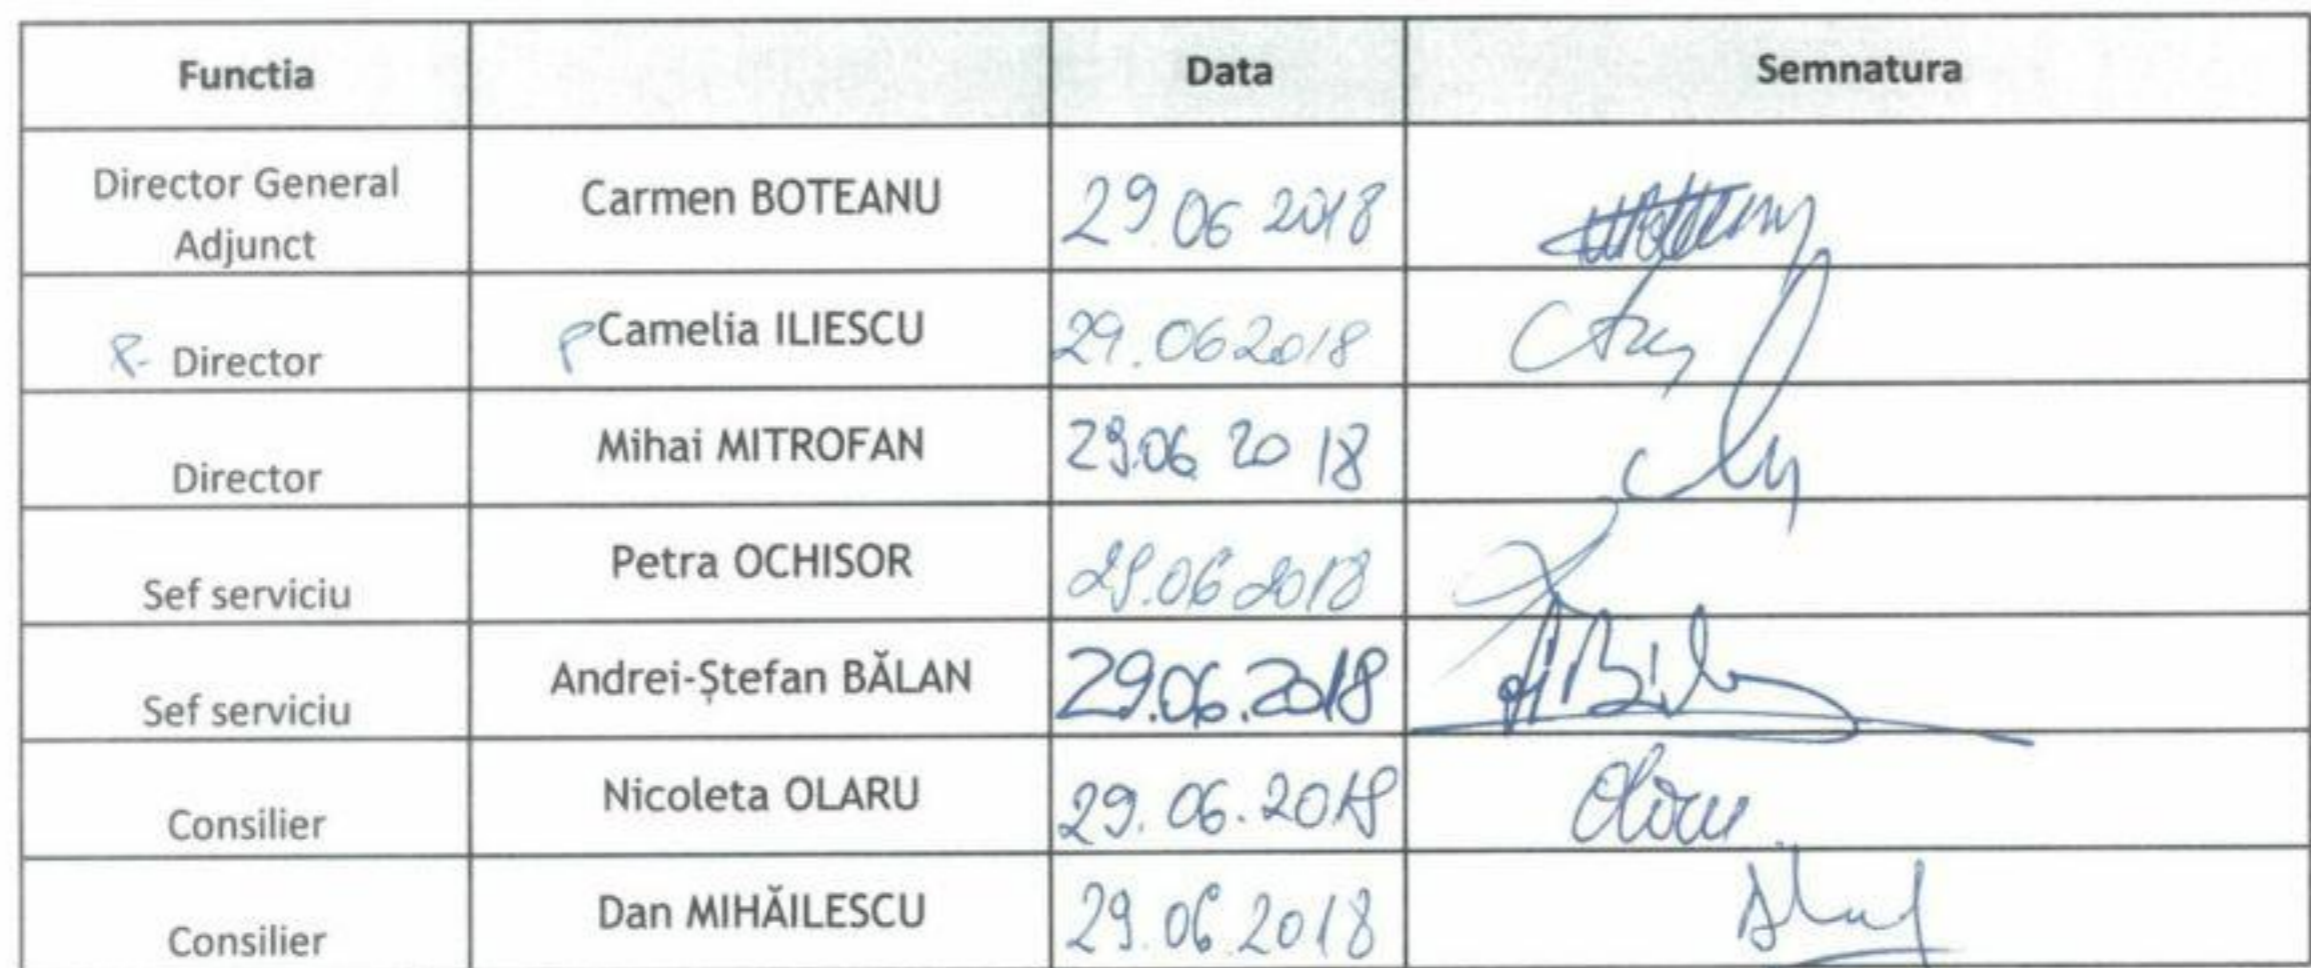 Functia Data Semnatura
Director General
Adjunct
Carmen BOTEANU 29.06 2018
P- Director P Camelia ILIESCU 29.06 2018
Director Mihai MITROFAN 29.06 20 18
Sef serviciu Petra OCHISOR 29.06 2018
Sef serviciu Andrei-Ștefan BĂLAN 29.06.2018
Consilier Nicoleta OLARU 29.06.2018
Consilier Dan MIHĂILESCU 29.06.2018